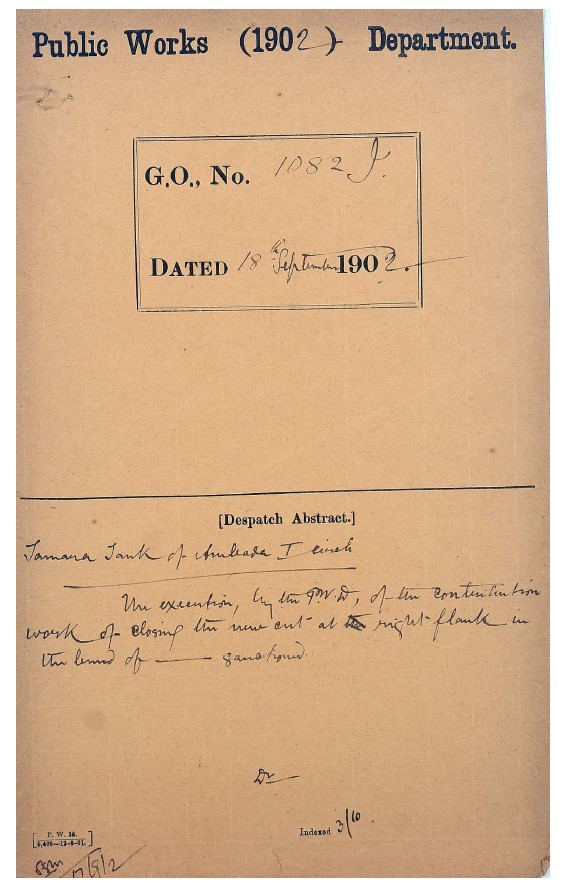 Public Works (1902) Department.
G.O., No. 1082 I.
DATED 18th September 1902.
[Despatch Abstract.]
Tamara Tank of Ambada I circle
The execution, by the P.W.D, of the contribution
work of closing the new cut at the right flank in
the bund of —— sanctioned.
Indexed 3/10
P. W. 38.
17/9/2